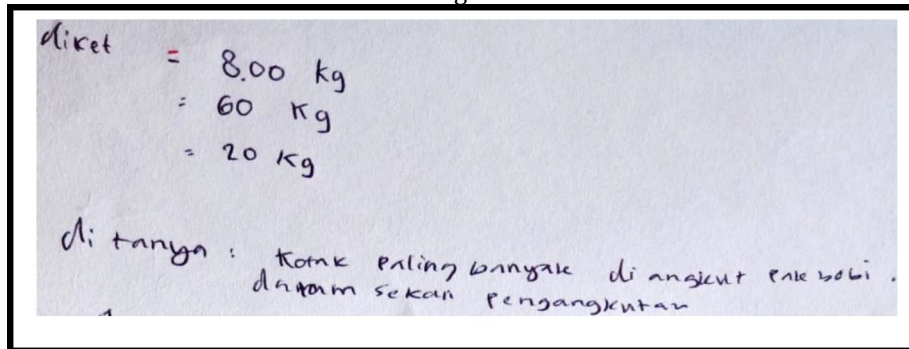 diket = 8.00 kg
= 60 Kg
= 20 Kg
di tanya : Kotak paling banyak di angkut pak bobi.
dalam sekali pengangkutan